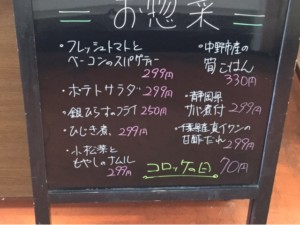 お惣菜
・フレッシュトマトと
ベーコンのスパゲティー
299円
・ポテトサラダ 299円
・銀ひらすのフライ 250円
・ひじき煮 299円
・小松菜と
もやしのナムル
299円
・中野市産の
筍ごはん
330円
・静岡県
サバ煮付 299円
・千葉県産真イワンの
甘酢だれ 299円
コロッケの日 70円